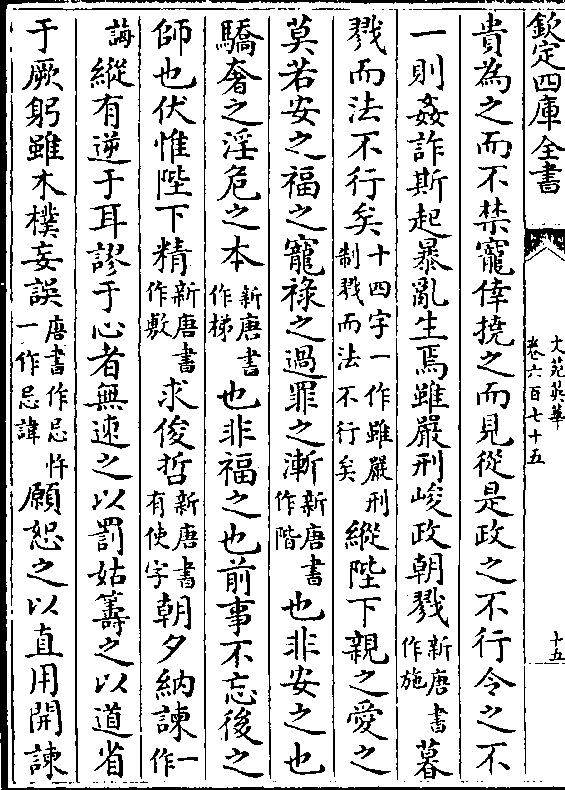 欽定四庫全書
文苑英華
卷六百七十五
十五
貴為之而不禁寵倖撓之而見從是政之不行令之不
一則姦詐斯起暴亂生焉雖嚴刑峻政朝戮新唐書作施暮
戮而法不行矣十四字一作雖嚴刑制戮而法不行矣縱陛下親之愛之
莫若安之福之寵祿之過罪之漸新唐書作階也非安之也
驕奢之淫危之本新唐書作梯也非福之也前事不忘後之
師也伏惟陛下精新唐書作敷求俊哲新唐書有使字朝夕納諫一作
誨縱有逆于耳謬于心者無速之以罰姑籌之以道省
于厥躬雖木樸妄誤唐書作忌忤一作忌諱願恕之以直用開諫